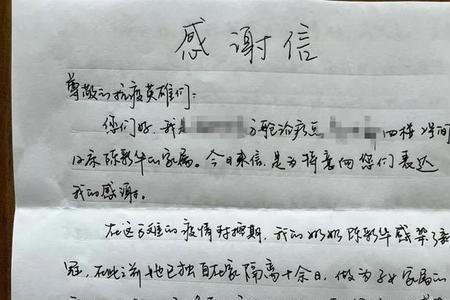 感谢信
尊敬的抗疫英雄们:
您们好,我是 方舱治疗点 四楼 
12床陈彩华的家属。今日来信,是为特意向您们表达
我的感谢。
在这艰难的疫情时期,我的奶奶陈彩华感染了新
冠,在此之前她已独自在家隔离十余日,做为子女家属的